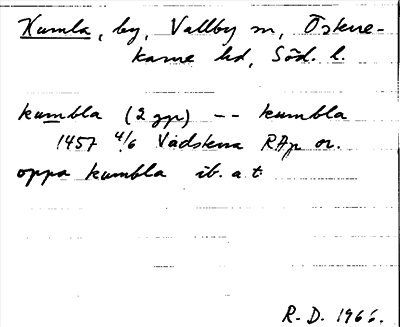 Kumla, by, Vallby sn, Öskne-
karne hd, Söd. l.
kumbla (2 ggr) -- kumbla
1457 4/6 Vadstena RAp or.
oppa kumbla ib. a.t
R.-D. 1966.